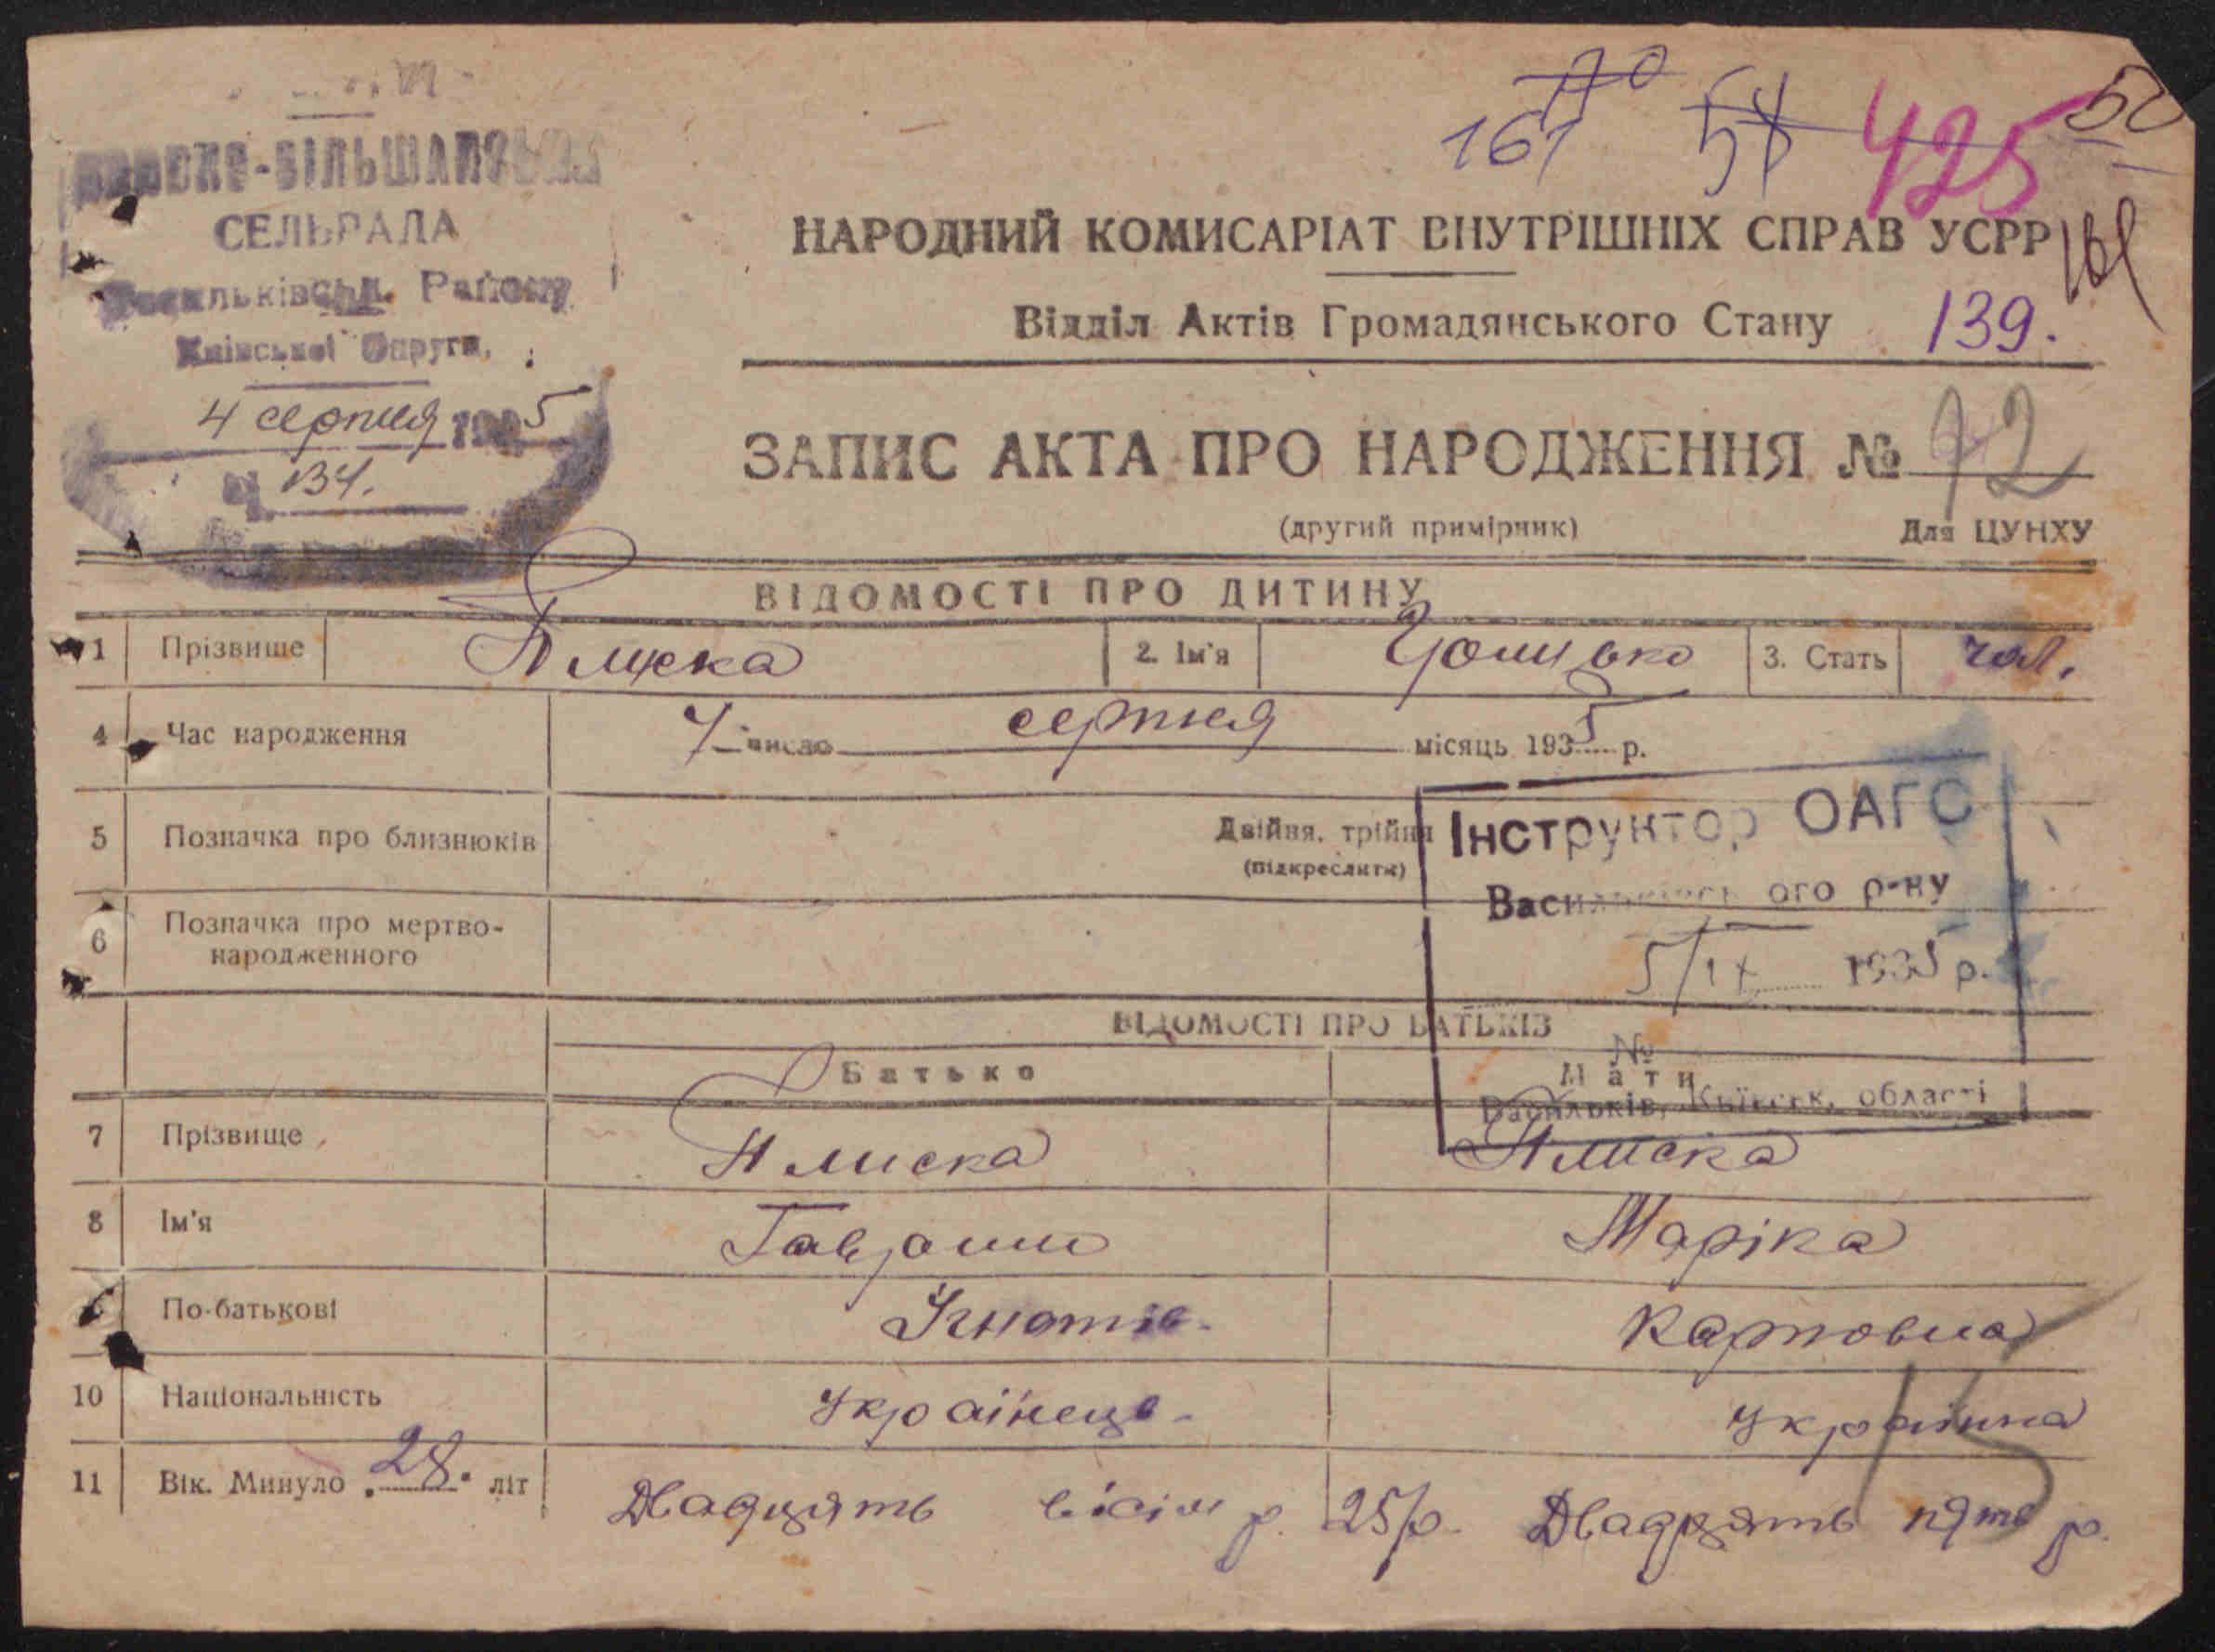 СЕЛЬРАДА
Району
Київської Округи,
4 серпня 1935
Ч. 134.
161 70 54 425 50
НАРОДНИЙ КОМИСАРІАТ ВНУТРІШНІХ СПРАВ УСРР
161
Відділ Актів Громадянського Стану 139.
ЗАПИС АКТА ПРО НАРОДЖЕННЯ № 72
(другий примірник) Для ЦУНХУ
ВІДОМОСТІ ПРО ДИТИНУ
1 Прізвище 2. Ім'я Грицько 3. Стать чол.
4 Час народження число серпня місяць 1935 р.
5 Позначка про близнюків Двійня, трійня
(підкреслити)
6 Позначка про мертво-
народженного
Інструктор ОАГС
Васильківського р-ну
5/IX 1935 р.
№
Васильків, Київськ. області
ВІДОМОСТІ ПРО БАТЬКІВ
Батько Мати
7 Прізвище
8 Ім'я Гаврило
9 По-батькові Ігнатів. Карповна
10 Національність Українець. Українка
11 Вік. Минуло 28. літ Двадцять вісім р. 25 р. Двадцять пять р.